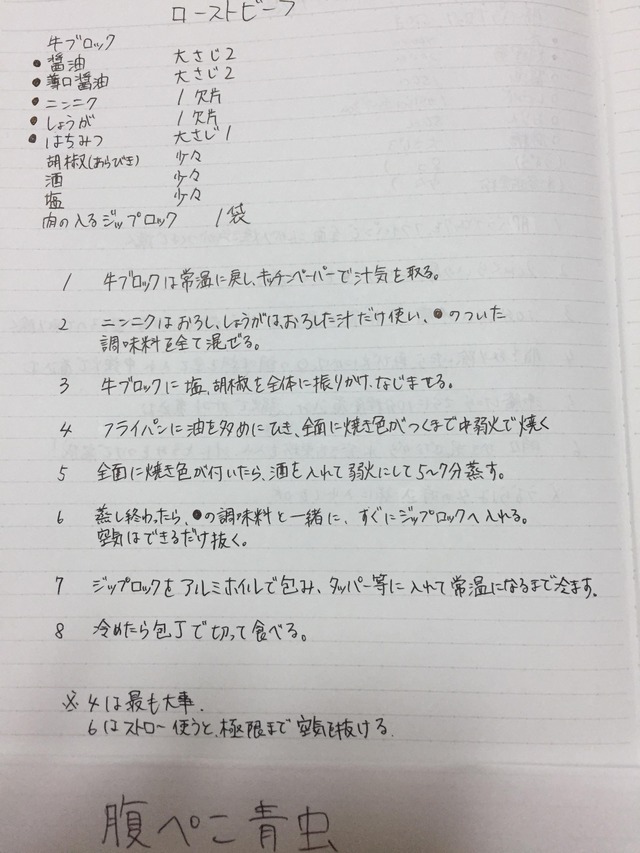 ローストビーフ
牛ブロック
●醤油 大さじ2
●薄口醤油 大さじ2
●ニンニク 1欠片
●しょうが 1欠片
●はちみつ 大さじ1
胡椒(あらびき) 少々
酒 少々
塩 少々
肉の入るジップロック 1袋
1 牛ブロックは常温に戻し、キッチンペーパーで汁気を取る。
2 ニンニクはおろし、しょうがは、おろした汁だけ使い、●のついた
調味料を全て混ぜる。
3 牛ブロックに塩、胡椒を全体に振りかけ、なじませる。
4 フライパンに油を多めにひき、全面に焼き色がつくまで中弱火で焼く
5 全面に焼き色が付いたら、酒を入れて弱火にして5~7分蒸す。
6 蒸し終わったら、●の調味料と一緒に、すぐにジップロックへ入れる。
空気はできるだけ抜く。
7 ジップロックをアルミホイルで包み、タッパー等に入れて常温になるまで冷ます.
8 冷めたら包丁で切って食べる。
※4は最も大事.
6はストロー使うと、極限まで空気を抜ける.
腹ペこ青虫